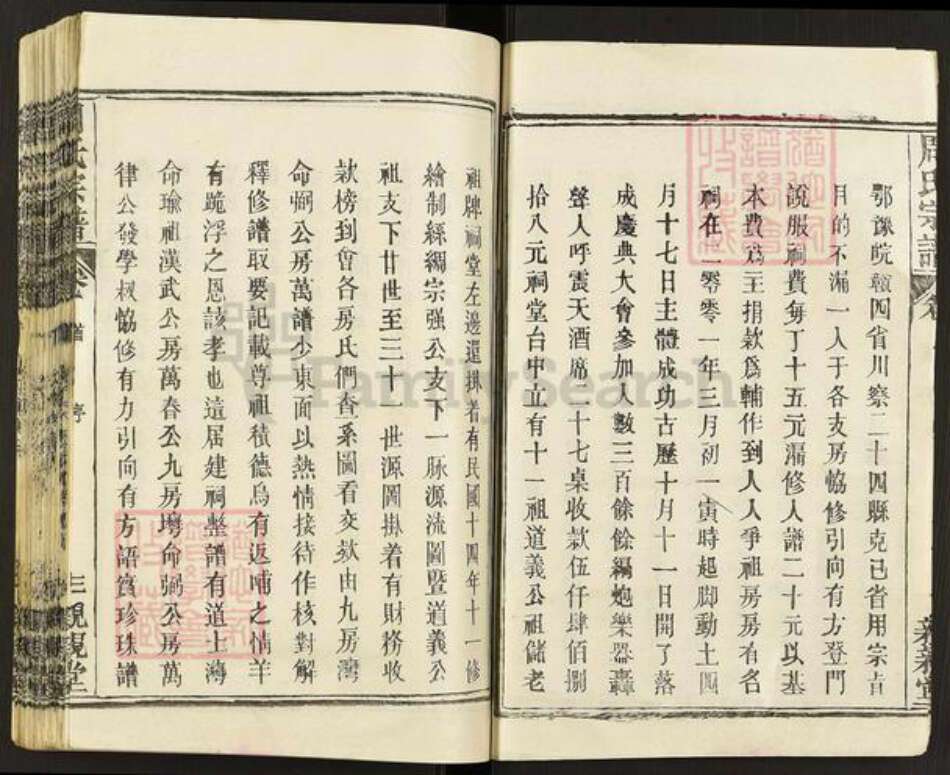 鄂豫皖贛四省川察二十四縣克已省用宗旨
目的不漏一人于各支房恊修引向有方登門
說服祠費每丁十五元漏修人譜二十元以基
本費爲主捐款爲輔作到人人爭祖房房有名
祠在二零零一年三月初一寅時起脚動土四
月十七日主體成功古歷十月十一日開了落
成慶典大會參加人數三百餘餘編炮樂器轟
聲人呼震天酒席八十七桌收款伍仟肆佰捌
拾八元祠堂台中立有十一祖道義公祖儲老
祖牌祠堂左邊還掛着有民國十四年十一修
繪制綵綢宗强公支下一脉源流圖暨道義公
祖支下廿世至三十一世源圖掛着有財務收
款榜到會各房氏們查系圖看交款由九房灣
命弼公房萬譜少東面以熱情接待作核對解
釋修譜取要記載尊祖積德烏有返哺之情羊
有跪浮之恩該孝也這居建祠整譜有道上灣
命瑜祖漢武公房萬春公九房塆命弼公房萬
律公發學校恊修有力引向有方語寳珍珠譜
氏宗譜
序
三硯堂
周氏宗譜
FamilySearch